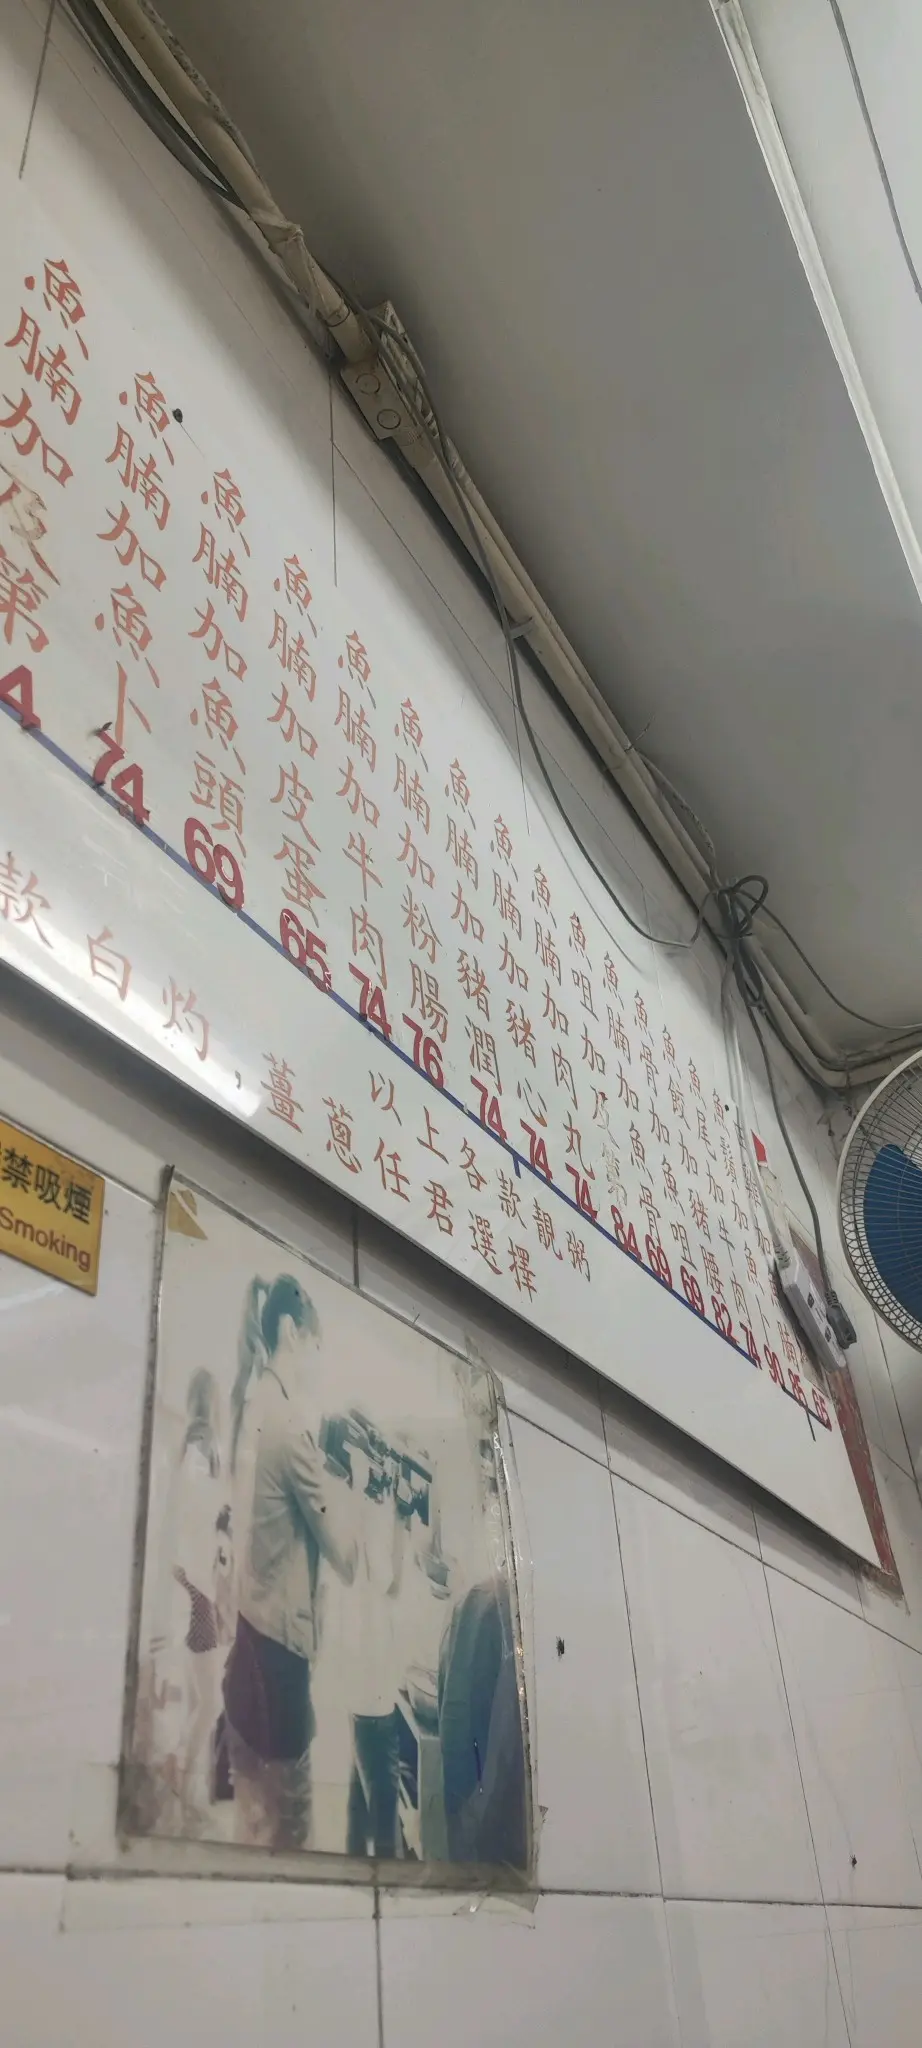 魚腩加及第
4
魚腩加魚卜
74
魚腩加魚頭
69
魚腩加皮蛋
65
魚腩加牛肉
74
魚腩加粉腸
76
魚腩加豬潤
74
魚腩加豬心
74
魚腩加肉丸
74
魚咀加及第
84
魚腩加魚骨
69
魚骨加魚咀
69
魚餃加豬腰
82
魚尾加牛肉
74
90
65
款白灼,薑蔥任君選擇
以上各款靚粥
禁吸煙
Smoking